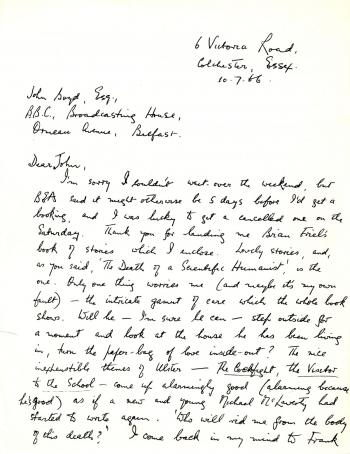 6 Victoria Road,
Colchester, Essex.
10.7.66.
John Boyd, Esq.,
B.B.C., Broadcasting House,
Ormeau Avenue, Belfast.
Dear John,
I'm sorry I couldn't wait over the weekend, but
BEA said it might otherwise be 5 days before I'd get a
booking, and I was lucky to get a cancelled one on the
Saturday. Thank you for lending me Brian Friel's
book of stories which I enclose. Lovely stories, and,
as you said, 'The Death of a Scientific Humanist' is the
one. Only one thing worries me (and maybe it's my own
fault) – the intricate of care which the whole book
shows. Will he – I'm sure he can – step outside for
a moment and look at the house he has been living
in, turn the paper-bag of love inside-out? The nice
inexhaustible themes of Ulster – The Cockfight, the Visitor
to the School – come up alarmingly good (alarming because
he's good) as if a new and young Michael McLaverty had
started to write again. 'Who will rid me from the body
of this death?' I come back in my mind to Frank